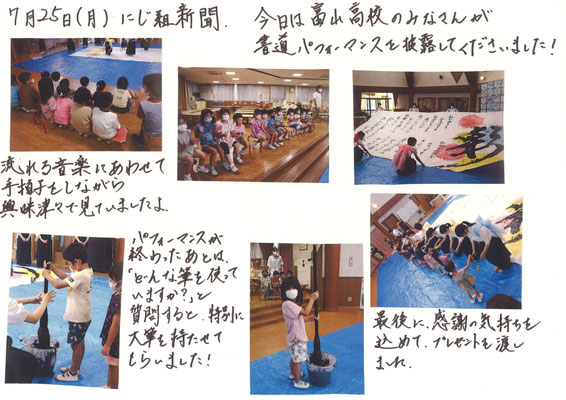 7月25日(月) にじ組新聞.
今日は畠山高校のみなさんが
書道パフォーマンスを披露してくださいました!
流れる音楽にあわせて
手拍子をしながら
興味津々で見ていましたよ.
パフォーマンスが
終わったあとは、
「どんな筆を使って
いますか?」と
質問すると、特別に
大筆を持たせて
もらいました!
最後に、感謝の気持ちを
込めて、プレゼントを渡し
ました.